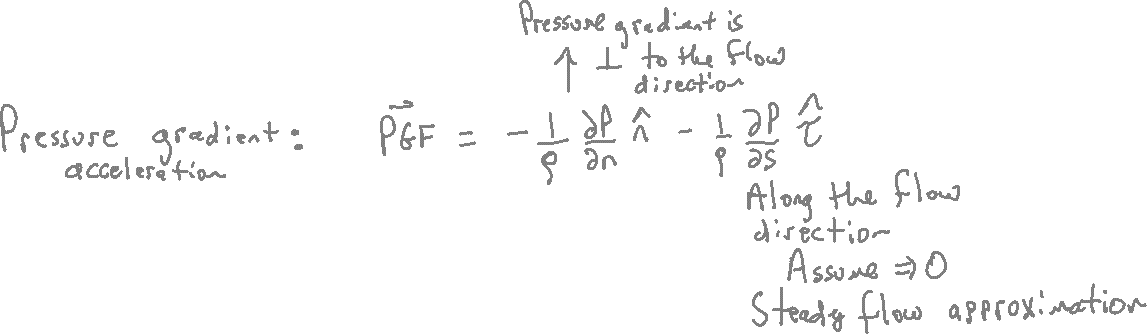 Pressure gradient is
↑ ⊥ to the flow
direction
Pressure gradient: PGF⃗ = - 1/ρ ∂P/∂n n̂ - 1/ρ ∂P/∂s τ̂
acceleration
Along the flow
direction
Assume ⇒ 0
Steady flow approximation